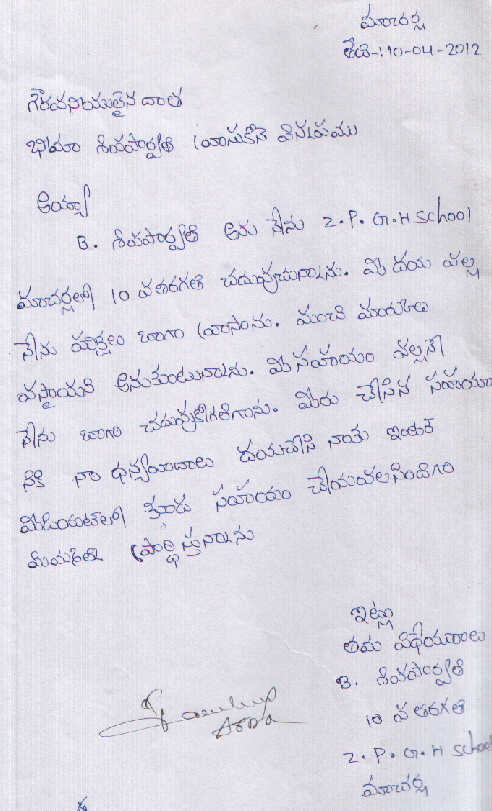 మాచర్ల
తేది-:10-04-2012
గౌరవనీయులైన దాత
భీమా శివపార్వతి వ్రాసుకొనే విన్నపము
అయ్యా
B. శివపార్వతి అను నేను Z.P.G.H School
మాచర్లలో 10 వ తరగతి చదువుచున్నాను. మీ దయ వల్ల
నేను పరీక్షలు బాగా వ్రాసాను. మంచి మార్కులు
వస్తాయని అనుకుంటున్నాను. మీ సహాయం వల్లనే
నేను బాగా చదువుకోగలిగాను. మీరు చేసిన సహాయా
నికి నా ధన్యవాదాలు దయచేసి నాకు ఇంటర్
మీడియట్‌లో కూడా సహాయం చేయవలసిందిగా
మిమ్మల్ని ప్రార్థిస్తున్నాను
ఇట్లు
తమ విధేయురాలు
B. శివపార్వతి
10 వ తరగతి
Z.P.G.H School
మాచర్ల